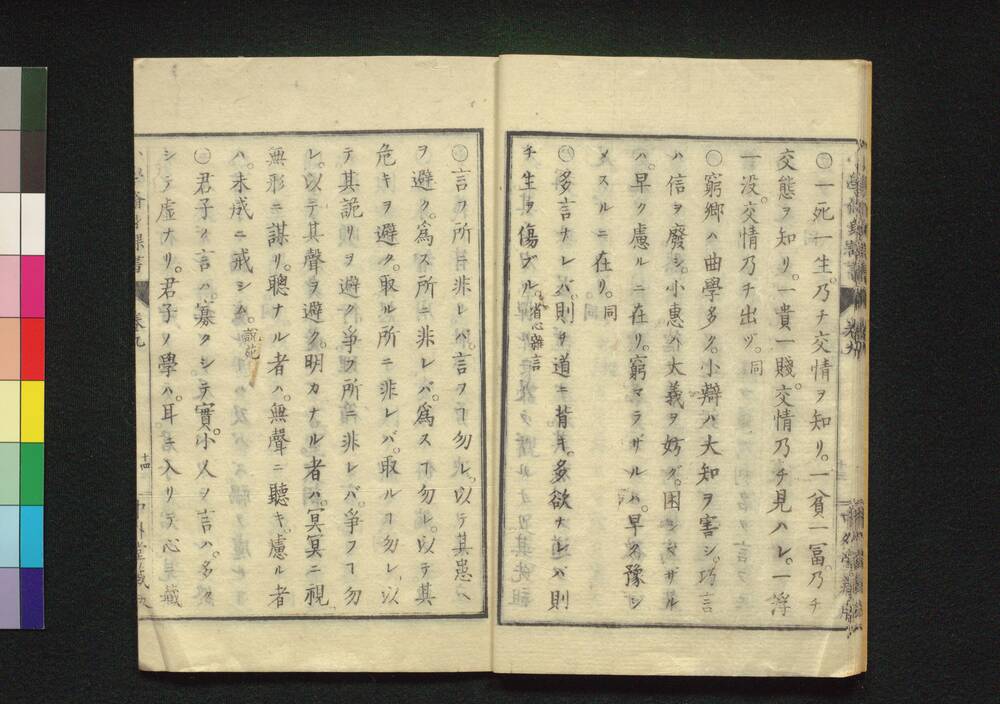 ○一死一生。乃チ交情ヲ知リ。一貧一冨。乃チ
交態ヲ知リ。一貴一賤。交情乃チ見ハレ。一浮
一没。交情乃チ出ヅ。同
○窮郷ハ曲學多ク。小辯ハ大知ヲ害シ。巧言
ハ信ヲ廢シ。小惠ハ大義ヲ妨グ。困シマザル
ハ。早ク慮ルニ在リ。窮マラザルハ。早ク豫シ
メスルニ在リ。同
○多言ナレバ。則ヲ道ニ背キ。多欲ナレバ則
チ生ヲ傷ブル。省心雜言
○言フ所ニ非レバ。言フヿ勿レ。以テ其患ヘ
ヲ避ク。爲ス所ニ非レバ。爲スヿ勿レ。以テ其
危キヲ避ク。取ル所ニ非レバ。取ルヿ勿レ。以
テ其詭リヲ避ク。爭フ所ニ非レバ。爭フヿ勿
レ。以テ其聲ヲ避ク。明カナル者ハ。冥冥ニ視
無形ニ謀リ。聰ナル者ハ。無聲ニ聽キ。慮ル者
ハ。未成ニ戒シム。說苑
○君子ノ言ハ。寡クシテ實。小人ヲ言ハ。多ク
シテ虛ナリ。君子ノ學ハ。耳ニ入リテ心ニ藏
卷九
十四